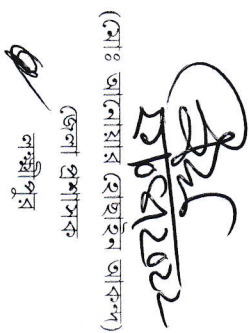 (মোঃ আনোয়ার হোছাইন আকন্দ)
জেলা প্রশাসক
লক্ষ্মীপুর